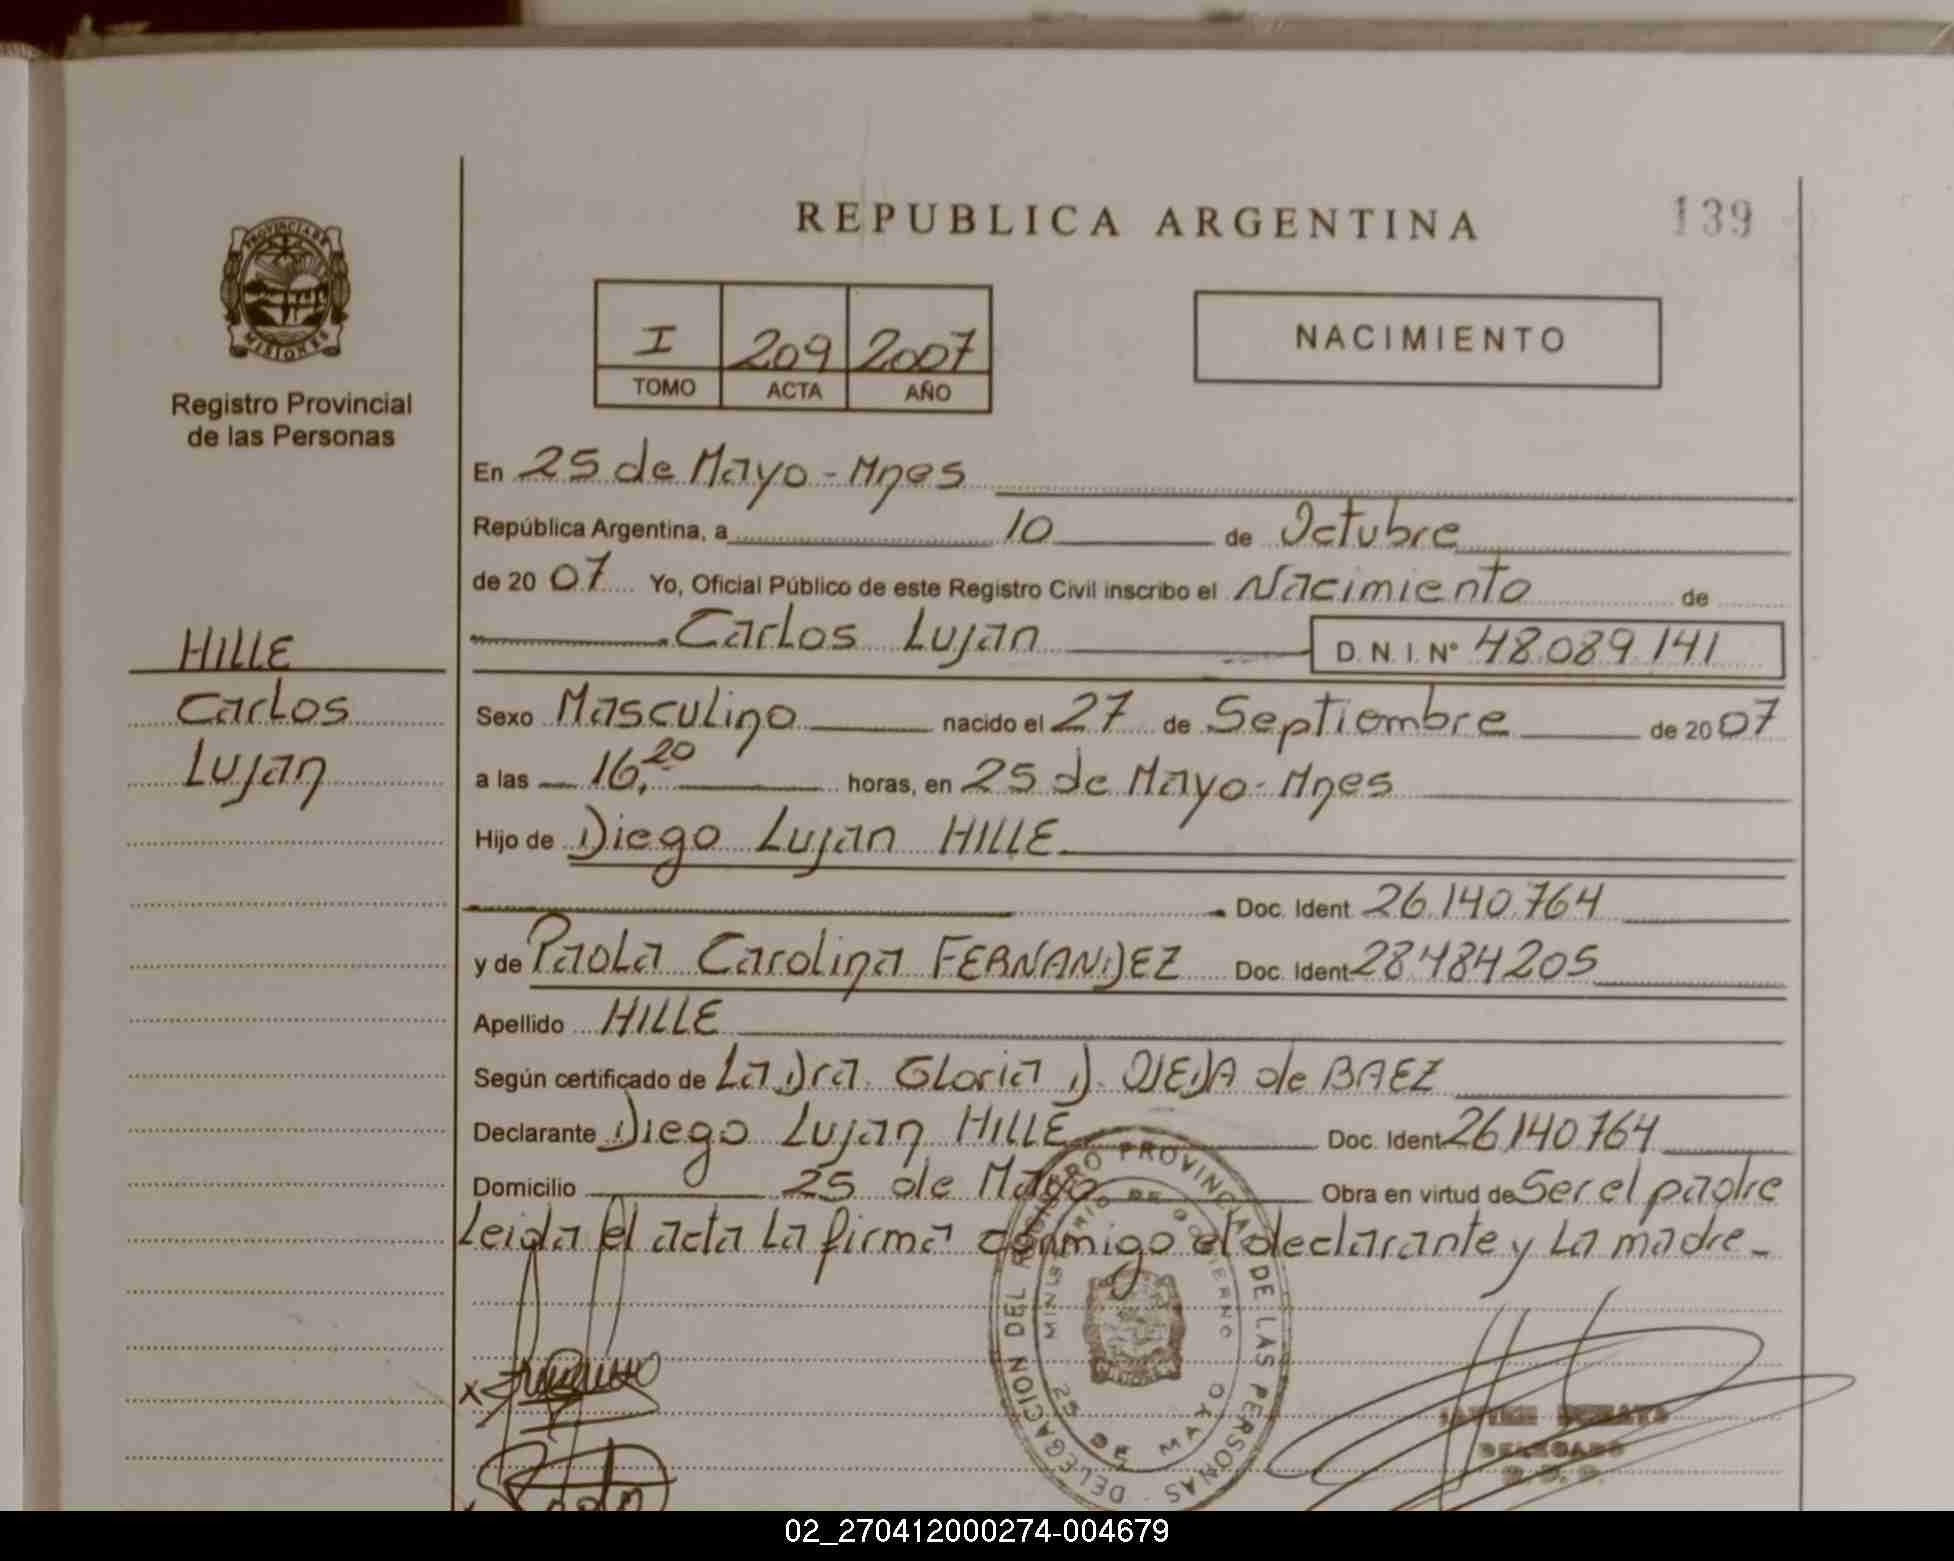 REPUBLICA ARGENTINA
139
PROVINCIA DE
MISIONES
Registro Provincial
de las Personas
I 209 2007
TOMO ACTA AÑO
NACIMIENTO
En 25 de Mayo - Mnes
República Argentina, a 10 de Octubre
de 20 07 Yo, Oficial Público de este Registro Civil inscribo el Nacimiento de
Carlos Lujan D. N. I. N° 48.089.141
HILLE
Carlos
Lujan
Sexo Masculino nacido el 27 de Septiembre de 20 07
a las 16,20 horas, en 25 de Mayo - Mnes
Hijo de Diego Lujan HILLE
Doc. Ident. 26.140.764
y de Paola Carolina FERNANDEZ Doc. Ident 28.484.205
Apellido HILLE
Según certificado de La Dra. Gloria D. OJEDA de BAEZ
Declarante Diego Lujan HILLE Doc. Ident 26.140.764
Domicilio 25 de Mayo Obra en virtud de Ser el padre
Leida el acta la firma conmigo el declarante y la madre
DELEGACION DEL REGISTRO PROVINCIAL DE LAS PERSONAS
MINISTERIO DE GOBIERNO
25 DE MAYO
DELEGADO
02_270412000274-004679